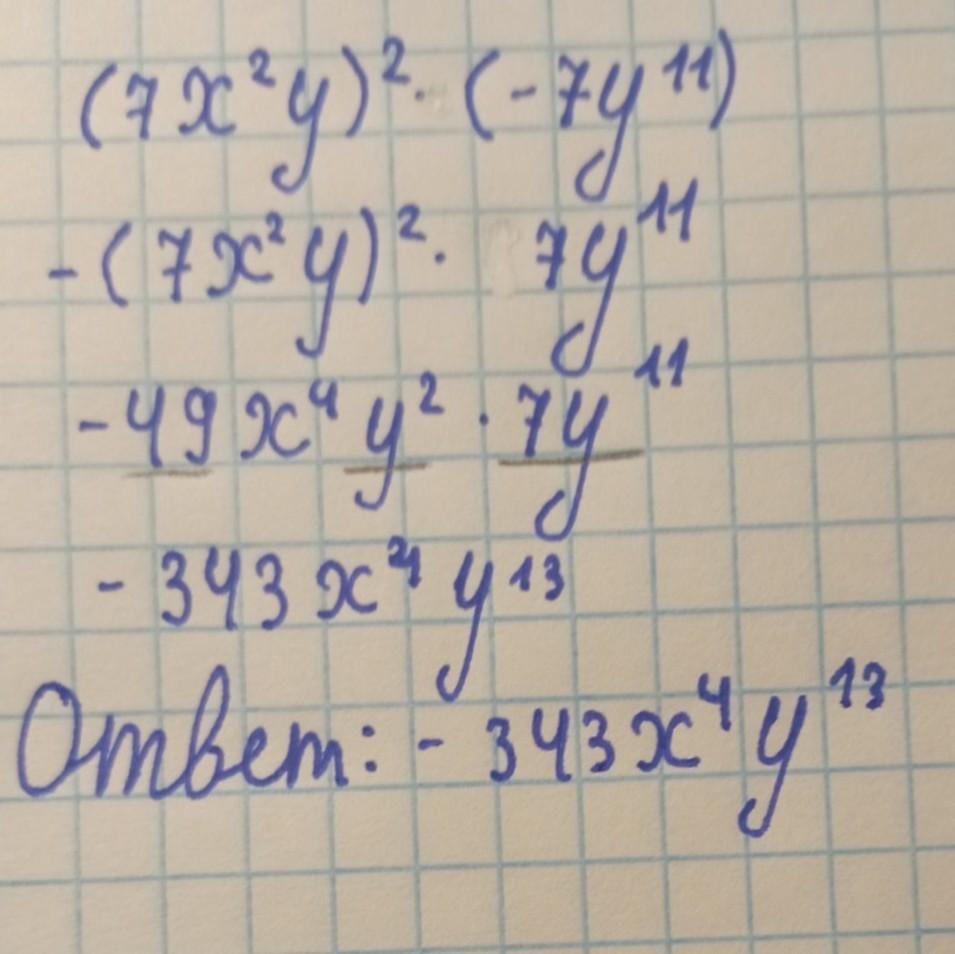 (7x²y)² · (-7y¹¹)
-(7x²y)² · 7y¹¹
-49x⁴y² · 7y¹¹
-343x⁴y¹³
Ответ: -343x⁴y¹³